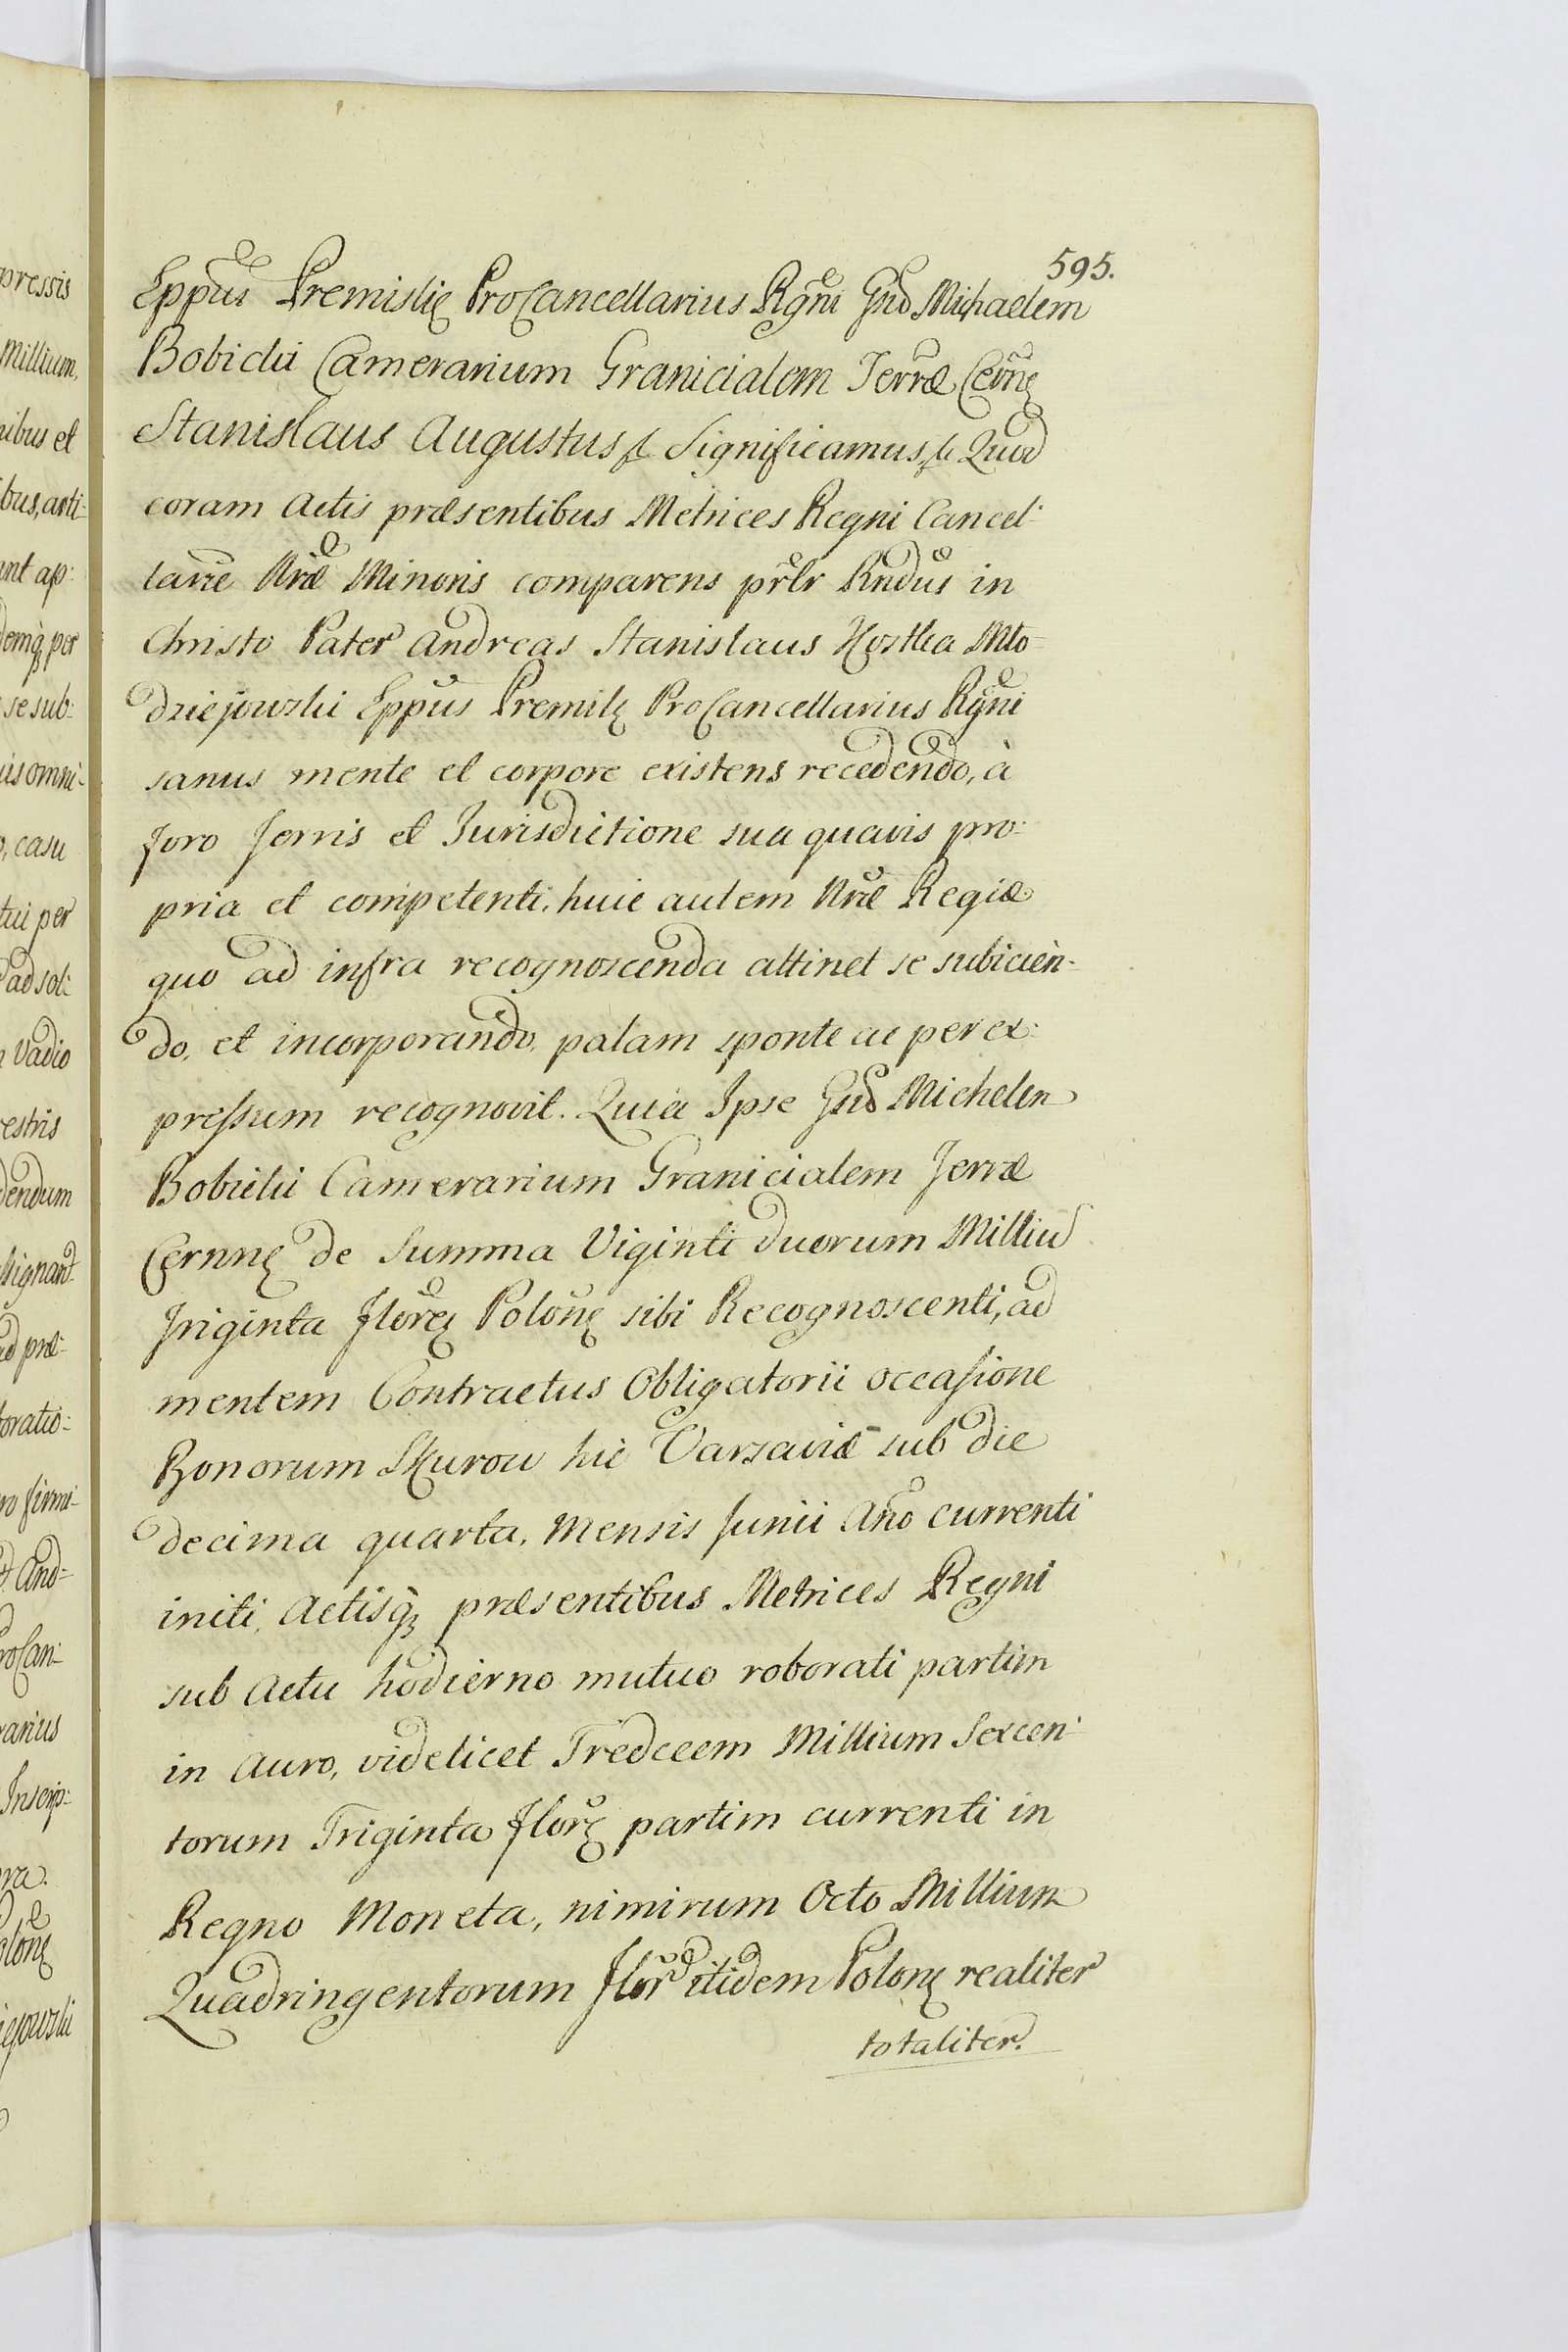 595.
Eppus Premislię ProCancellarius Rgni Gnd Michaelem
Bobicki Camerarium Granicialem Terræ Cernę
Stanislaus Augustus & Significamus & Quod
coram Actis præsentibus Metrices Regni Cancel:
lariæ Nræ Minoris comparens prlr Rndus in
Christo Pater Andreas Stanislaus Kostka Mło
dziejowski Eppus Premilę ProCancellarius Rgni
sanus mente et corpore existens recedendo, à
foro Terris et Iurisdictione sua quavis pro:
pria et competenti, huic autem Nræ Regiæ
quo ad infra recognoscenda attinet se subicièn-
do, et incorporando, palam sponte ac per ex:
pressum recognovit. Quia Ipse Gnd Michelem
Bobicki Camerarium Granicialem Terræ
Cernnę de Summa Viginti duorum Milliu
Triginta florę Polonę sibi Recognoscenti, ad
mentem Contractus Obligatorii occasione
Bonorum Skurow hic Varsaviæ sub die
decima quarta, Mensis Junii Ano currenti
initi, Actisq, præsentibus Metrices Regni
sub Actu hodierno mutuo roborati partim
in Auro, videlicet Tredceem Millium Sexcen:
torum Triginta florę partim currenti in
Regno Moneta, nimirum Octo Millium
Quadringentorum flor itidem Polonę realiter
totaliter.
pressis
Millium,
nibus et
bus, arti:
unt ap:
demq, per
se sub:
iis omni-
o, casu
tui per
ad sol:
Vadio
restris
dendum
ssignant
ad præ-
oratio:
ro firmi-
And=
roCan:
rarius
Inscrip:
ra.
olonę
iejowski